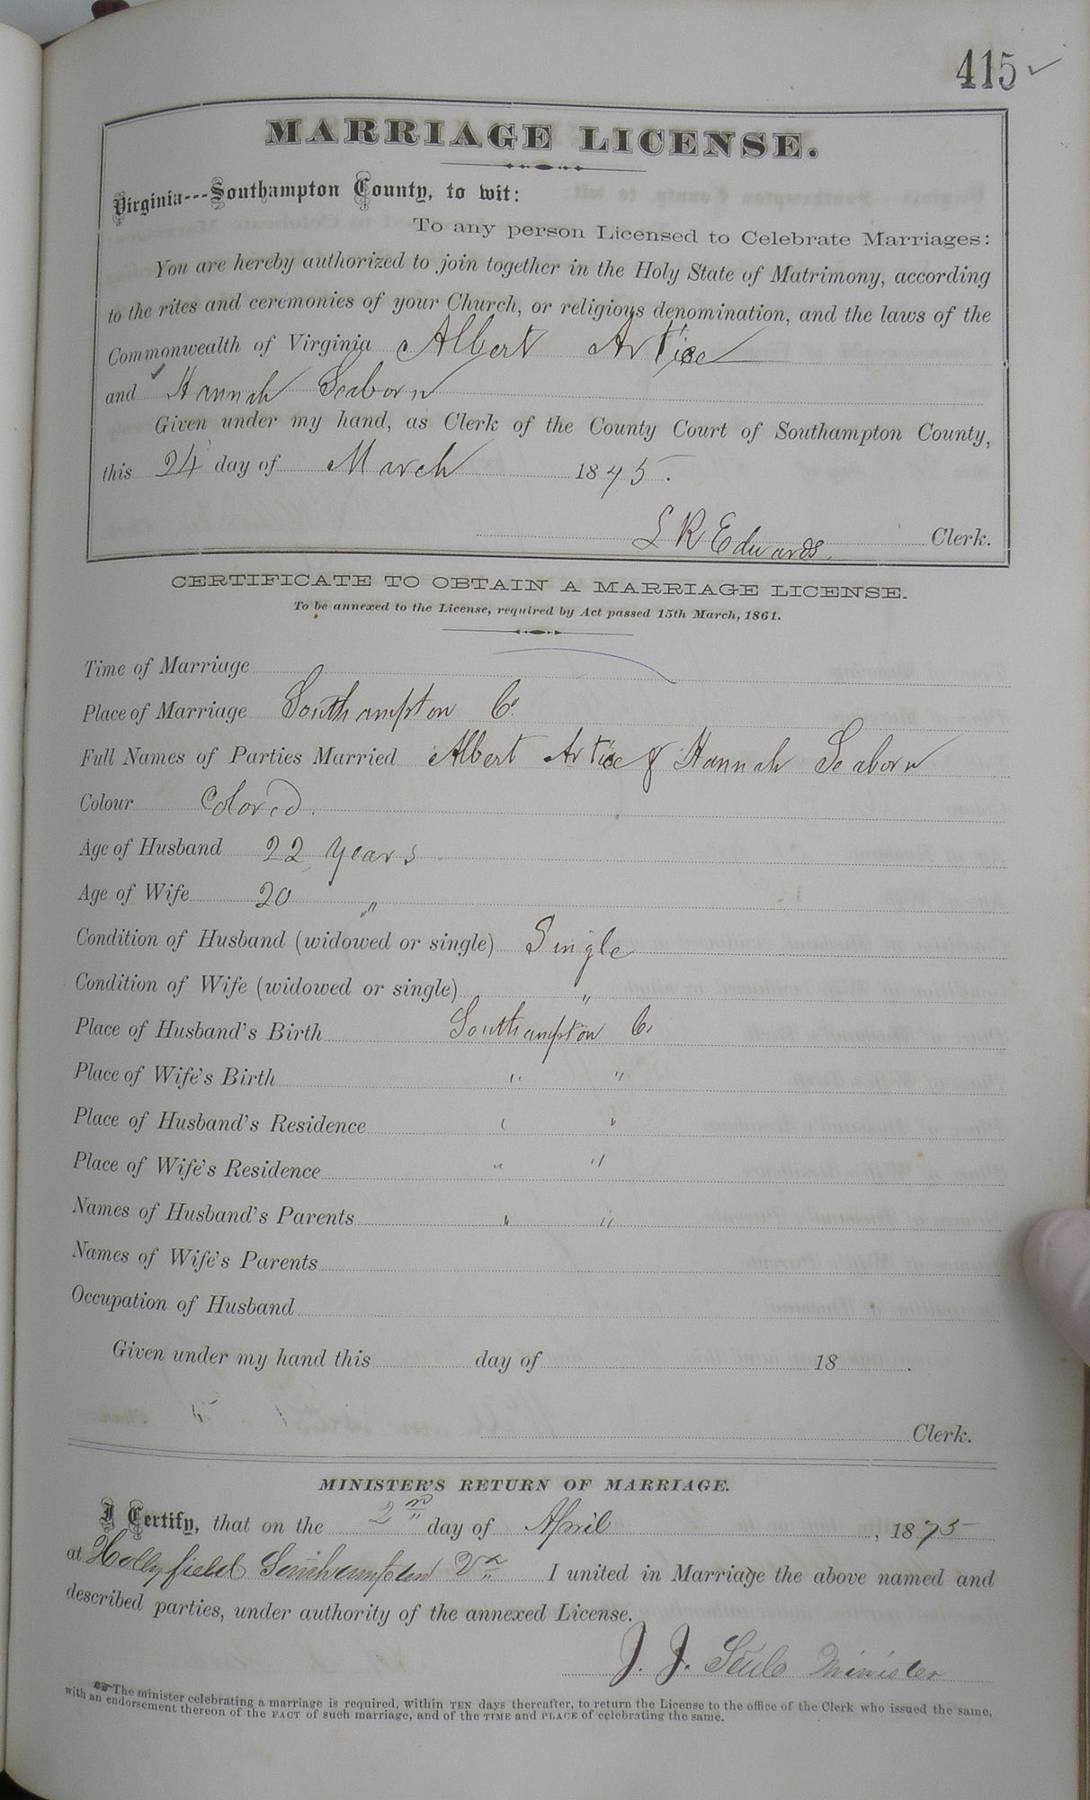 415 ✓
MARRIAGE LICENSE.
Virginia---Southampton County, to wit:
To any person Licensed to Celebrate Marriages:
You are hereby authorized to join together in the Holy State of Matrimony, according
to the rites and ceremonies of your Church, or religious denomination, and the laws of the
Commonwealth of Virginia Albert Artice
and Hannah Seaborn
Given under my hand, as Clerk of the County Court of Southampton County,
this 24 day of March 1875.
L R Edwards. Clerk.
CERTIFICATE TO OBTAIN A MARRIAGE LICENSE.
To be annexed to the License, required by Act passed 15th March, 1861.
Time of Marriage
Place of Marriage Southampton Co.
Full Names of Parties Married Albert Artice & Hannah Seaborn
Colour Colored.
Age of Husband 22 years
Age of Wife 20 "
Condition of Husband (widowed or single) Single
Condition of Wife (widowed or single) "
Place of Husband's Birth Southampton Co.
Place of Wife's Birth " "
Place of Husband's Residence " "
Place of Wife's Residence " "
Names of Husband's Parents " "
Names of Wife's Parents
Occupation of Husband
Given under my hand this day of 18 .
Clerk.
MINISTER'S RETURN OF MARRIAGE.
I Certify, that on the 2nd day of April, 1875
at Hollyfield Southampton Va I united in Marriage the above named and
described parties, under authority of the annexed License.
J. J. Minister
The minister celebrating a marriage is required, within TEN days thereafter, to return the License to the office of the Clerk who issued the same,
with an endorsement thereon of the FACT of such marriage, and of the TIME and PLACE of celebrating the same.